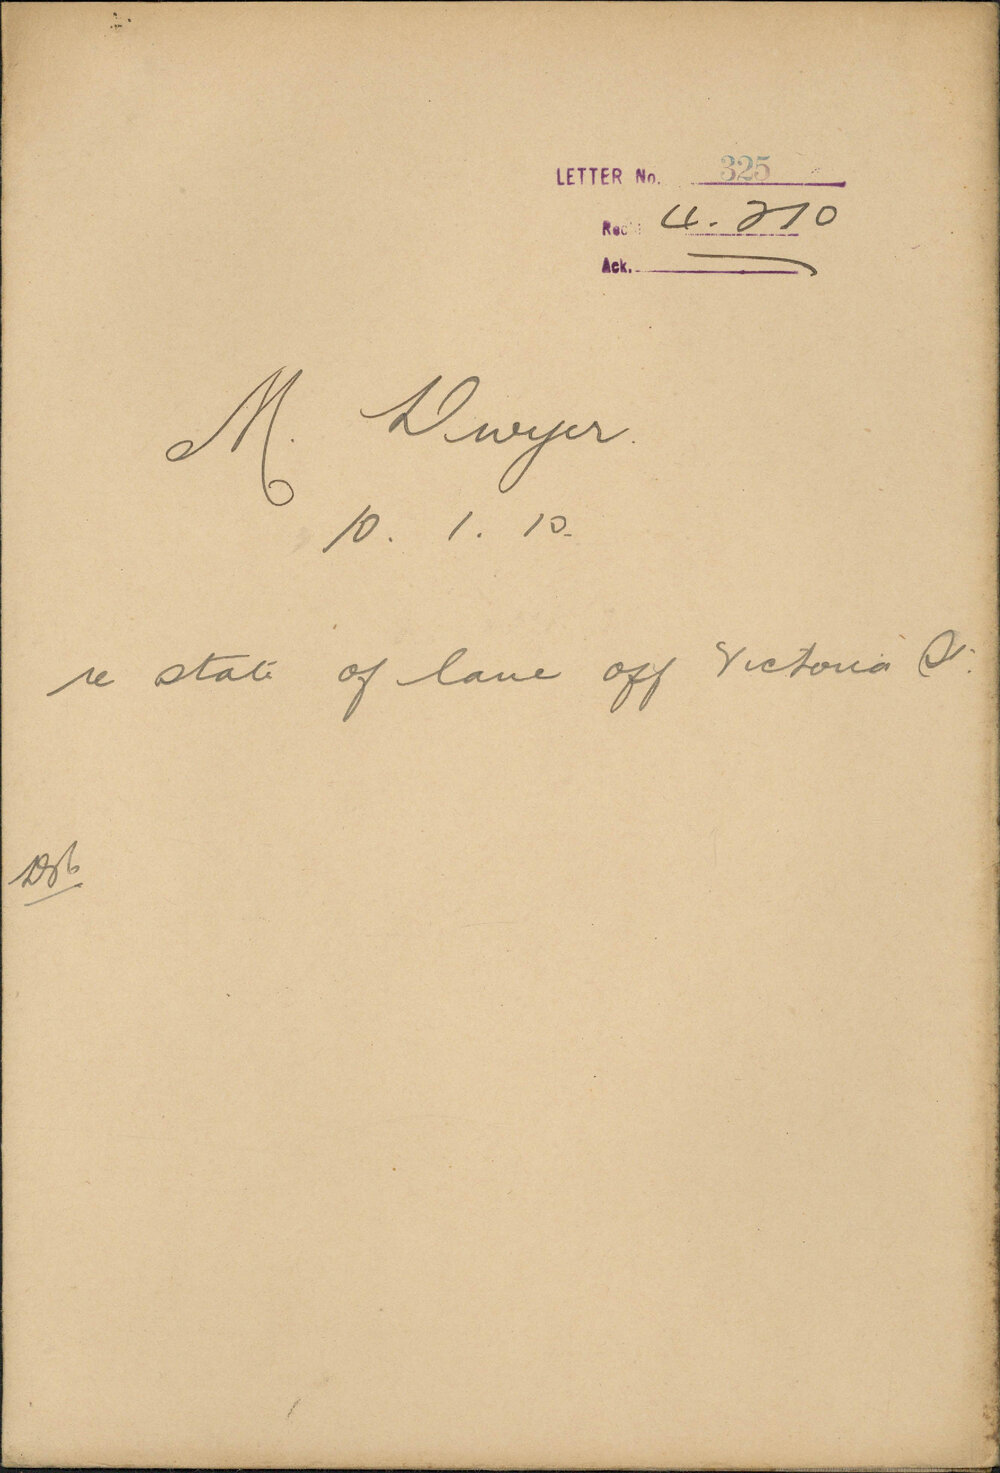 LETTER No. 325
Rec'd 4. 2 10
Ack.
M. Dwyer.
10. 1. 10.
re state of lane off Victoria St.